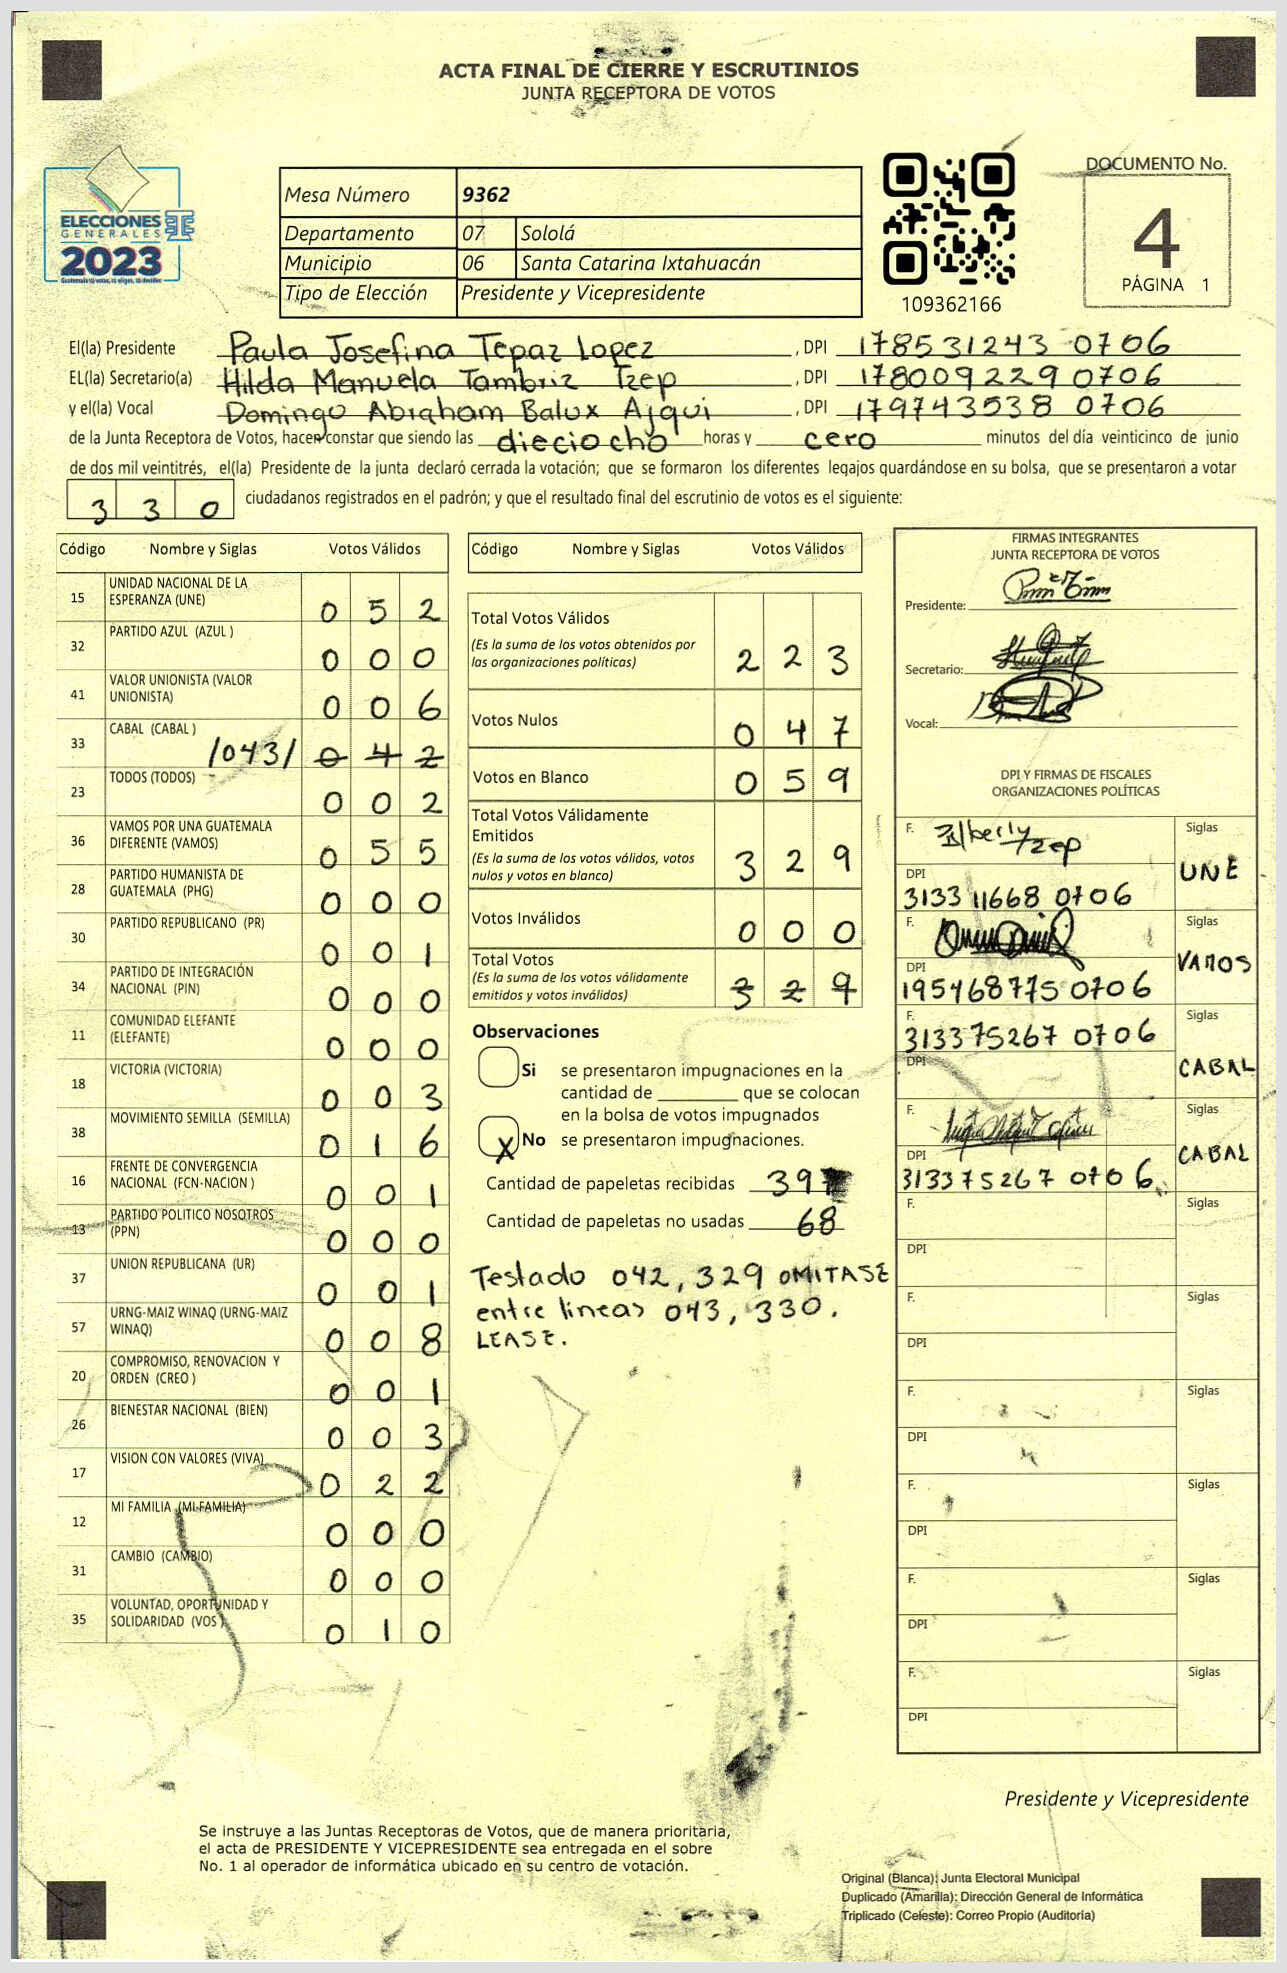 ACTA FINAL DE CIERRE Y ESCRUTINIOS
JUNTA RECEPTORA DE VOTOS
ELECCIONES
GENERALES
2023
Mesa Número 9362
Departamento 07 Sololá
Municipio 06 Santa Catarina Ixtahuacán
Tipo de Elección Presidente y Vicepresidente
109362166
DOCUMENTO No.
4
PÁGINA 1
El(la) Presidente Paula Josefina Tepaz Lopez , DPI 178531243 0706
EL(la) Secretario(a) Hilda Manuela Tambriz Tzep , DPI 178009229 0706
y el(la) Vocal Domingo Abraham Balux Ajqui , DPI 179743538 0706
de la Junta Receptora de Votos, hacen constar que siendo las dieciocho horas y cero minutos del día veinticinco de junio
de dos mil veintitrés, el(la) Presidente de la junta declaró cerrada la votación; que se formaron los diferentes legajos quardándose en su bolsa, que se presentaron a votar
3 3 0 ciudadanos registrados en el padrón; y que el resultado final del escrutinio de votos es el siguiente:
Código Nombre y Siglas Votos Válidos
15 UNIDAD NACIONAL DE LA ESPERANZA (UNE) 0 5 2
32 PARTIDO AZUL (AZUL ) 0 0 0
41 VALOR UNIONISTA (VALOR UNIONISTA) 0 0 6
33 CABAL (CABAL ) /043/ 0 4 2
23 TODOS (TODOS) 0 0 2
36 VAMOS POR UNA GUATEMALA DIFERENTE (VAMOS) 0 5 5
28 PARTIDO HUMANISTA DE GUATEMALA (PHG) 0 0 0
30 PARTIDO REPUBLICANO (PR) 0 0 1
34 PARTIDO DE INTEGRACIÓN NACIONAL (PIN) 0 0 0
11 COMUNIDAD ELEFANTE (ELEFANTE) 0 0 0
18 VICTORIA (VICTORIA) 0 0 3
38 MOVIMIENTO SEMILLA (SEMILLA) 0 1 6
16 FRENTE DE CONVERGENCIA NACIONAL (FCN-NACION ) 0 0 1
13 PARTIDO POLITICO NOSOTROS (PPN) 0 0 0
37 UNION REPUBLICANA (UR) 0 0 1
57 URNG-MAIZ WINAQ (URNG-MAIZ WINAQ) 0 0 8
20 COMPROMISO, RENOVACION Y ORDEN (CREO ) 0 0 1
26 BIENESTAR NACIONAL (BIEN) 0 0 3
17 VISION CON VALORES (VIVA) 0 2 2
12 MI FAMILIA (MI FAMILIA) 0 0 0
31 CAMBIO (CAMBIO) 0 0 0
35 VOLUNTAD, OPORTUNIDAD Y SOLIDARIDAD (VOS ) 0 1 0
Código Nombre y Siglas Votos Válidos
Total Votos Válidos 2 2 3
(Es la suma de los votos obtenidos por
las organizaciones políticas)
Votos Nulos 0 4 7
Votos en Blanco 0 5 9
Total Votos Válidamente
Emitidos 3 2 9
(Es la suma de los votos válidos, votos
nulos y votos en blanco)
Votos Inválidos 0 0 0
Total Votos
(Es la suma de los votos válidamente
emitidos y votos inválidos) 3 2 9
Observaciones
Si se presentaron impugnaciones en la
cantidad de ________ que se colocan
en la bolsa de votos impugnados
X No se presentaron impugnaciones.
Cantidad de papeletas recibidas 397
Cantidad de papeletas no usadas 68
Testado 042, 329 OMITASE
entre lineas 043, 330.
LEASE.
FIRMAS INTEGRANTES
JUNTA RECEPTORA DE VOTOS
Presidente:
Secretario:
Vocal:
DPI Y FIRMAS DE FISCALES
ORGANIZACIONES POLÍTICAS
F. Siglas
DPI 3133 11668 0706 UNE
F. Siglas
DPI 195468775 0706 VAMOS
F. 313375267 0706 Siglas
DPI CABAL
F. Siglas
DPI 313375267 0706 CABAL
F. Siglas
DPI
F. Siglas
DPI
F. Siglas
DPI
F. Siglas
DPI
F. Siglas
DPI
F. Siglas
DPI
Presidente y Vicepresidente
Se instruye a las Juntas Receptoras de Votos, que de manera prioritaria,
el acta de PRESIDENTE Y VICEPRESIDENTE sea entregada en el sobre
No. 1 al operador de informática ubicado en su centro de votación.
Original (Blanca): Junta Electoral Municipal
Duplicado (Amarilla): Dirección General de Informática
Triplicado (Celeste): Correo Propio (Auditoría)